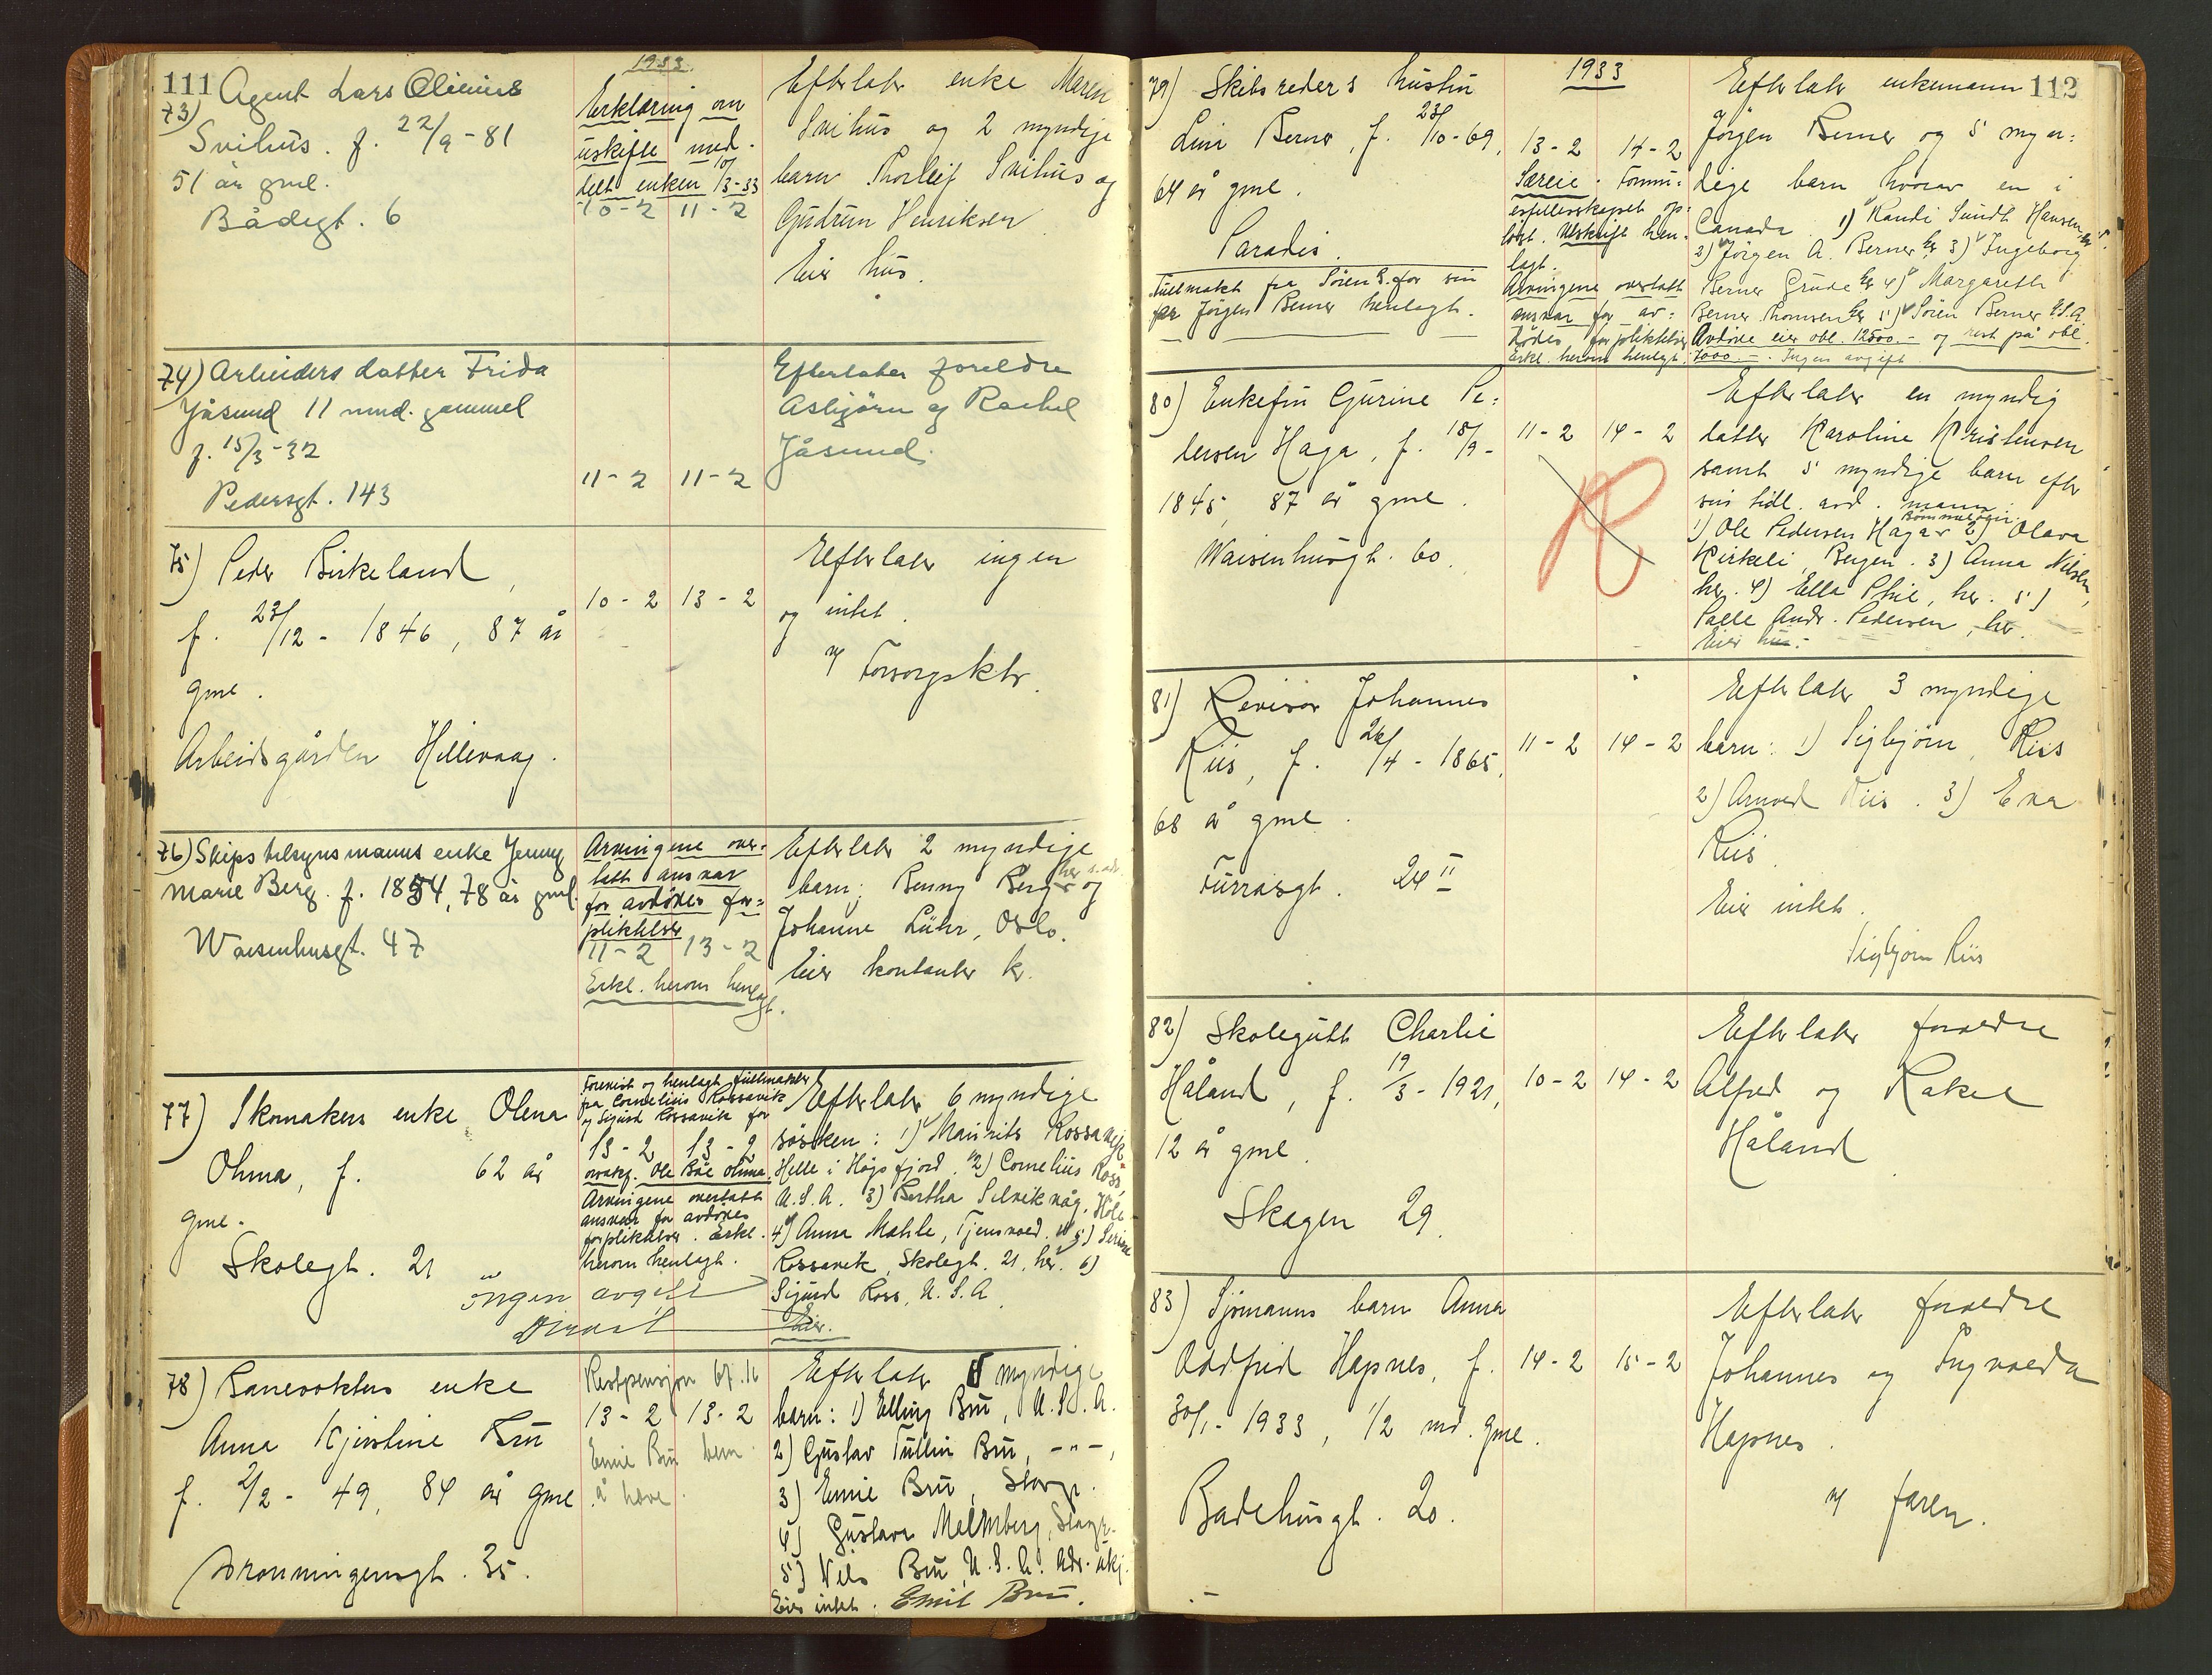 111
1933.
73) Agent Lars Olinius
Svihus. f. 22/9-81
51 år gml.
Bådegt. 6
Erklæring om
uskifte med-
delt enken 10/3-33
10-2 11-2
Efterlater enke Maren
Svihus og 2 myndige
barn Thorleif Svihus og
Gudrun Henriksen.
Eier hus.
74) Arbeiders datter Frida
Jåsund 11 mnd. gammel
f. 15/3-32
Pedersgt. 143
11-2 11-2
Efterlater foreldre
Asbjørn og Rachel
Jåsund.
75) Peder Birkeland,
f. 23/12 - 1846, 87 år
gml.
Arbeidsgården Hillevaag.
10-2 13-2
Efterlater ingen
og intet.
v/ Forsorgsktr.
76) Skipstilsynsmanns enke Jenny
Marie Berg. f. 1854, 78 år gml.
Waisenhusgt. 47
Arvingene over-
tatt ansvar
for avdødes for=
pliktelser
11-2 13-2
Erkl. herom henlagt.
Efterlater 2 myndige
barn: Benny Berg her s. adr. og
Johanne Lühr, Oslo.
Eier kontanter kr.
77) Skomakers enke Olena
Ohma, f. 62 år
gml.
Skolegt. 21
Ingen avgift
Fremvist og henlagt fullmakter
fra Cornelius Rossavik
og Sigurd Rossavik for
13-2 13-2
overkj. Ole Båe Ohma.
Arvingene overtatt
ansvar for avdødes
forpliktelser. Erkl.
herom henlagt.
Efterlater 6 myndige
søsken: 1) Mauritz Rossavik
Helle i Høgsfjord. 2) Cornelius Ross,
U.S.A. 3) Bertha Selvikvåg, Høle
4) Anna Mæhle, Tjensvoed. 5) Serine
Rossavik, Skolegt. 21, her. 6)
Sigurd Ross, U.S.A.
Eier.
78) Banevokters enke
Anna Kjirstine Bru
f. 2/2 - 49, 84 år gml.
Dronningensgt. 35.
Restpensjon 67.16
13-2 13-2
Emil Bru hem
å heve.
Efterlater 5 myndige
barn: 1) Elling Bru, U.S.A.
2) Gustav Tullin Bru, -"-,
3) Emil Bru, Stavgr.
4) Gustava Malmberg, Stavgr.
5) Nels Bru, U.S.A. adr. ukj.
Eier intet. Emil Bru.
112
1933
79) Skibsreders hustru
Lina Berner, f. 23/10-69,
64 år gml.
Paradis.
Fullmakt fra Søren B. for sin
far Jørgen Berner henlagt.
13-2 14-2
Særeie. Formu=
esfellesskapet op=
løst. Utskrift hen-
lagt.
Arvingene overtatt
ansvar for av=
dødes forpliktelser
Erkl. herom henlagt.
Efterlater enkemann
Jørgen Berner og 5 myn=
dige barn hvorav en i
Canada. 1) Randi Sundt Hansen, her.
2) Jørgen A. Berner her 3) Ingeborg
Berner Grude her 4) Margareth
Berner Thomsen her 5) Søren Berner U.S.A.
Avdøde eier obl. 12500.- og rest på obl.
7000.-. Ingen avgift.
80) Enkefru Gurine Pe=
dersen Haga, f. 18/9-
1845, 87 år gml.
Waisenhusgt. 60.
11-2 14-2
Efterlater en myndig
datter Karoline Kristensen
samt 5 myndige barn efter
sin tidl. avd. mann:
1) Ole Pedersen Haga 2) Olava
Kirkeli, Bergen. 3) Anna Nilsen,
her. 4) Ella Phil, her. 5)
Palle Andr. Pedersen, her.
Eier hus.
81) Revisor Johannes
Riis, f. 26/4 - 1865,
68 år gml.
Furrasgt. 24 II
11-2 14-2
Efterlater 3 myndige
barn: 1) Sigbjørn Riis
2) Arnved Riis. 3) Eva
Riis.
Eier intet.
Sigbjørn Riis
82) Skolegutt Charlie
Håland, f. 19/3 - 1921,
12 år gml.
Skagen 29.
10-2 14-2
Efterlater foreldre
Alfred og Rakel
Håland
83) Sjømanns barn Anna
Oddfrid Hapnes, f.
30/1 - 1933, 1/2 md. gml.
Badehusgt. 20.
14-2 15-2
Efterlater foreldre
Johannes og Ingvalda
Hapnes.
v/ faren.